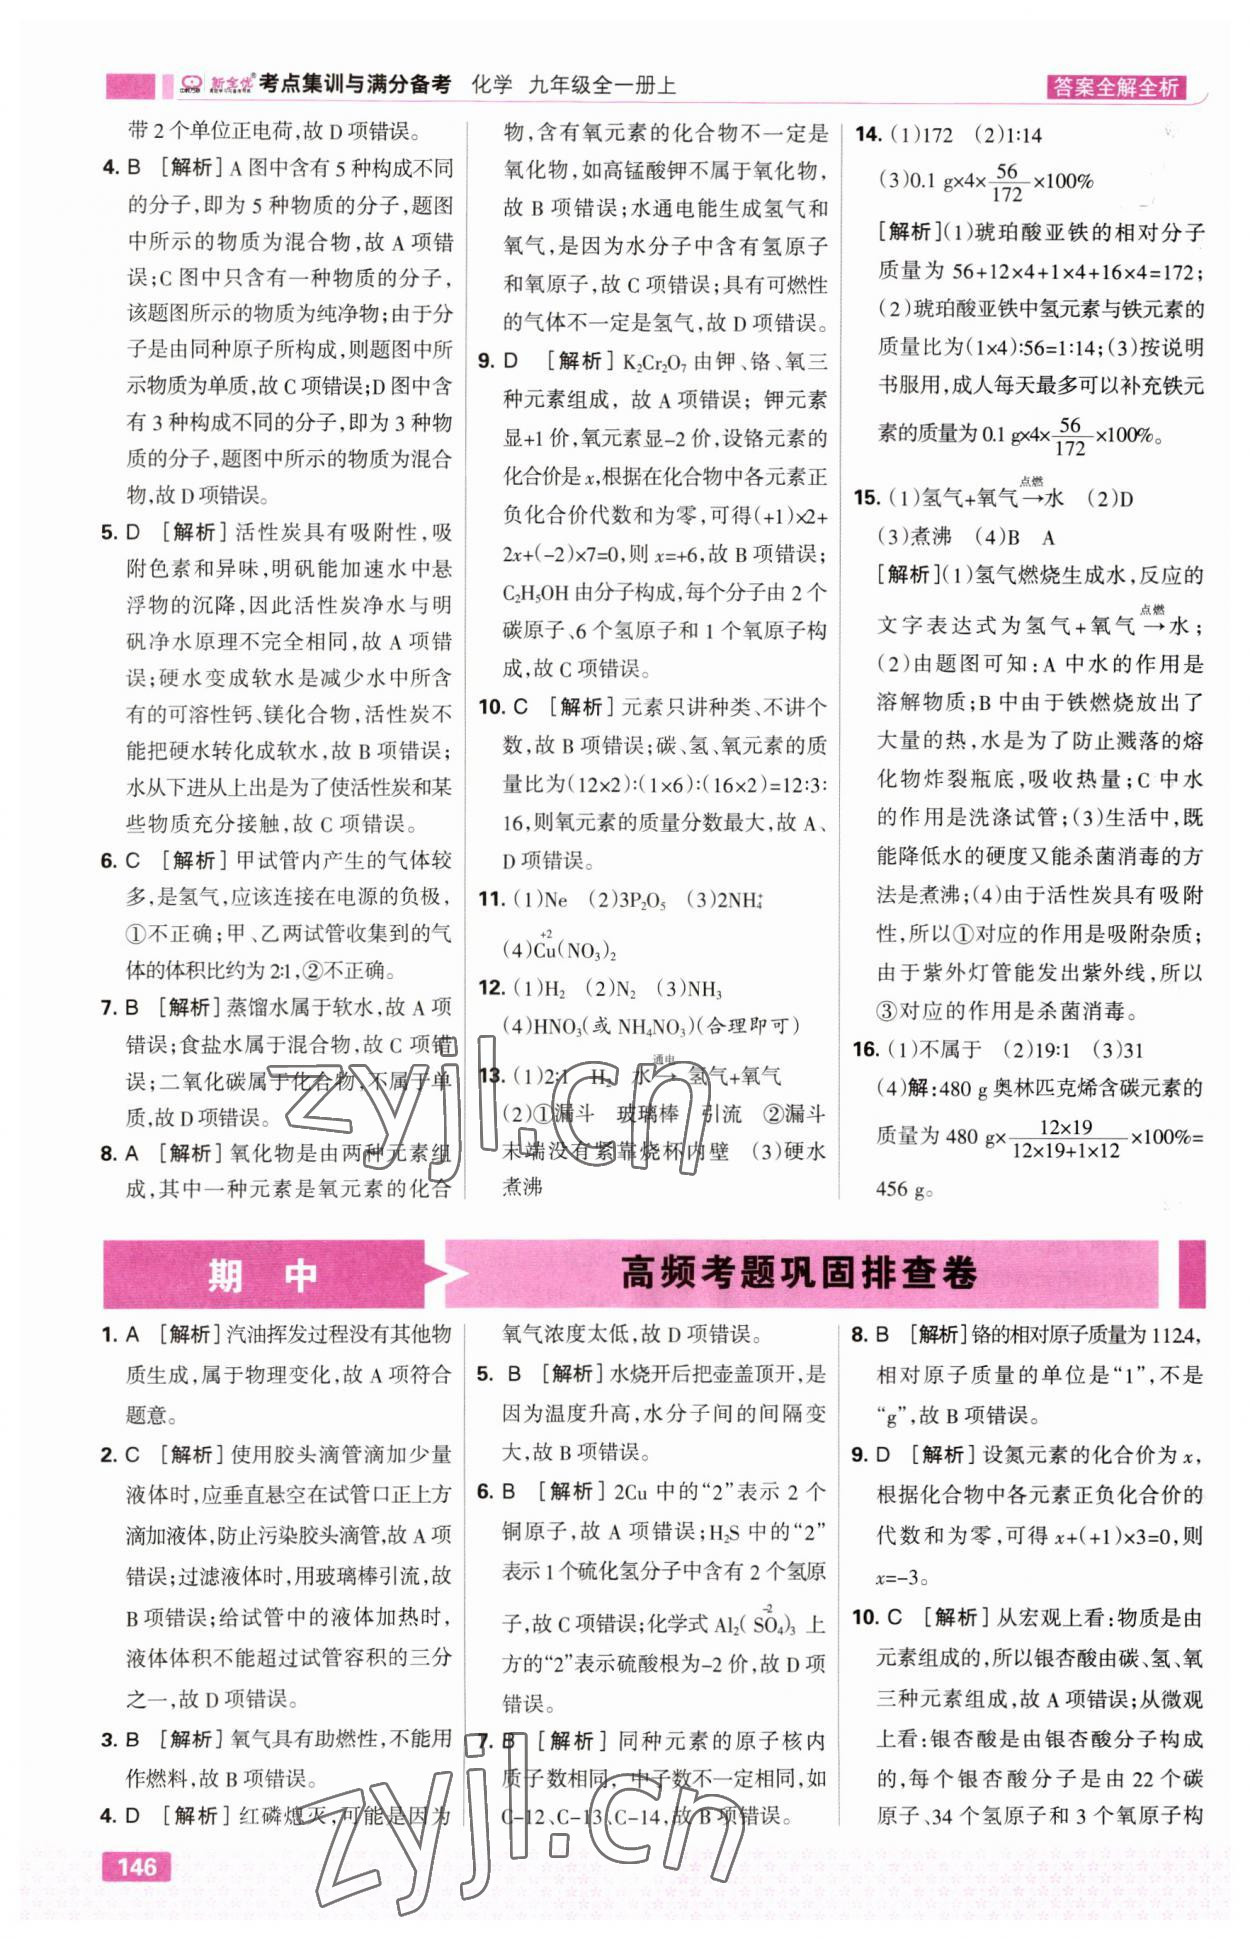 新全优 考点集训与满分备考 化学 九年级全一册上
答案全解全析
带 2 个单位正电荷,故 D 项错误。
4. B [解析] A 图中含有 5 种构成不同
的分子,即为 5 种物质的分子,题图
中所示的物质为混合物,故 A 项错
误;C 图中只含有一种物质的分子,
该题图所示的物质为纯净物;由于分
子是由同种原子所构成,则题图中所
示物质为单质,故 C 项错误;D 图中含
有 3 种构成不同的分子,即为 3 种物
质的分子,题图中所示的物质为混合
物,故 D 项错误。
5. D [解析] 活性炭具有吸附性,吸
附色素和异味,明矾能加速水中悬
浮物的沉降,因此活性炭净水与明
矾净水原理不完全相同,故 A 项错
误;硬水变成软水是减少水中所含
有的可溶性钙、镁化合物,活性炭不
能把硬水转化成软水,故 B 项错误;
水从下进从上出是为了使活性炭和某
些物质充分接触,故 C 项错误。
6. C [解析] 甲试管内产生的气体较
多,是氢气,应该连接在电源的负极,
①不正确;甲、乙两试管收集到的气
体的体积比约为 2:1,②不正确。
7. B [解析] 蒸馏水属于软水,故 A 项
错误;食盐水属于混合物,故 C 项错
误;二氧化碳属于化合物,不属于单
质,故 D 项错误。
8. A [解析] 氧化物是由两种元素组
成,其中一种元素是氧元素的化合
物,含有氧元素的化合物不一定是
氧化物,如高锰酸钾不属于氧化物,
故 B 项错误;水通电能生成氢气和
氧气,是因为水分子中含有氢原子
和氧原子,故 C 项错误;具有可燃性
的气体不一定是氢气,故 D 项错误。
9. D [解析] K₂Cr₂O₇ 由钾、铬、氧三
种元素组成,故 A 项错误;钾元素
显+1 价,氧元素显-2 价,设铬元素的
化合价是 x,根据在化合物中各元素正
负化合价代数和为零,可得(+1)×2+
2x+(-2)×7=0,则 x=+6,故 B 项错误;
C₂H₅OH 由分子构成,每个分子由 2 个
碳原子、6 个氢原子和 1 个氧原子构
成,故 C 项错误。
10. C [解析] 元素只讲种类、不讲个
数,故 B 项错误;碳、氢、氧元素的质
量比为(12×2):(1×6):(16×2)=12:3:
16,则氧元素的质量分数最大,故 A、
D 项错误。
11. (1)Ne (2)3P₂O₅ (3)2NH₄⁺
+2
(4)Cu(NO₃)₂
12. (1)H₂ (2)N₂ (3)NH₃
(4)HNO₃(或 NH₄NO₃)(合理即可)
13. (1)2:1 H₂ 水 通电→ 氢气+氧气
(2)①漏斗 玻璃棒 引流 ②漏斗
末端没有紧靠烧杯内壁 (3)硬水
煮沸
14. (1)172 (2)1:14
(3)0.1 g×4×56/172×100%
[解析] (1)琥珀酸亚铁的相对分子
质量为 56+12×4+1×4+16×4=172;
(2)琥珀酸亚铁中氢元素与铁元素的
质量比为(1×4):56=1:14;(3)按说明
书服用,成人每天最多可以补充铁元
素的质量为 0.1 g×4×56/172×100%。
15. (1)氢气+氧气 点燃→水 (2)D
(3)煮沸 (4)B A
[解析] (1)氢气燃烧生成水,反应的
文字表达式为氢气+氧气 点燃→水;
(2)由题图可知:A 中水的作用是
溶解物质;B 中由于铁燃烧放出了
大量的热,水是为了防止溅落的熔
化物炸裂瓶底,吸收热量;C 中水
的作用是洗涤试管;(3)生活中,既
能降低水的硬度又能杀菌消毒的方
法是煮沸;(4)由于活性炭具有吸附
性,所以①对应的作用是吸附杂质;
由于紫外灯管能发出紫外线,所以
③对应的作用是杀菌消毒。
16. (1)不属于 (2)19:1 (3)31
(4)解:480 g 奥林匹克烯含碳元素的
质量为 480 g×12×19/12×19+1×12×100%=
456 g。
期 中 高频考题巩固排查卷
1. A [解析] 汽油挥发过程没有其他物
质生成,属于物理变化,故 A 项符合
题意。
2. C [解析] 使用胶头滴管滴加少量
液体时,应垂直悬空在试管口正上方
滴加液体,防止污染胶头滴管,故 A 项
错误;过滤液体时,用玻璃棒引流,故
B 项错误;给试管中的液体加热时,
液体体积不能超过试管容积的三分
之一,故 D 项错误。
3. B [解析] 氧气具有助燃性,不能用
作燃料,故 B 项错误。
4. D [解析] 红磷熄灭,可能是因为
氧气浓度太低,故 D 项错误。
5. B [解析] 水烧开后把壶盖顶开,是
因为温度升高,水分子间的间隔变
大,故 B 项错误。
6. B [解析] 2Cu 中的“2”表示 2 个
铜原子,故 A 项错误;H₂S 中的“2”
表示 1 个硫化氢分子中含有 2 个氢原
子,故 C 项错误;化学式 Al₂(SO₄)₃ 上
-2
方的“2”表示硫酸根为-2 价,故 D 项
错误。
7. B [解析] 同种元素的原子核内
质子数相同,中子数不一定相同,如
C-12、C-13、C-14,故 B 项错误。
8. B [解析] 铬的相对原子质量为 112.4,
相对原子质量的单位是“1”,不是
“g”,故 B 项错误。
9. D [解析] 设氮元素的化合价为 x,
根据化合物中各元素正负化合价的
代数和为零,可得 x+(+1)×3=0,则
x=-3。
10. C [解析] 从宏观上看:物质是由
元素组成的,所以银杏酸由碳、氢、氧
三种元素组成,故 A 项错误;从微观
上看:银杏酸是由银杏酸分子构成
的,每个银杏酸分子是由 22 个碳
原子、34 个氢原子和 3 个氧原子构
146
zyjl.cn
zyjl.cn